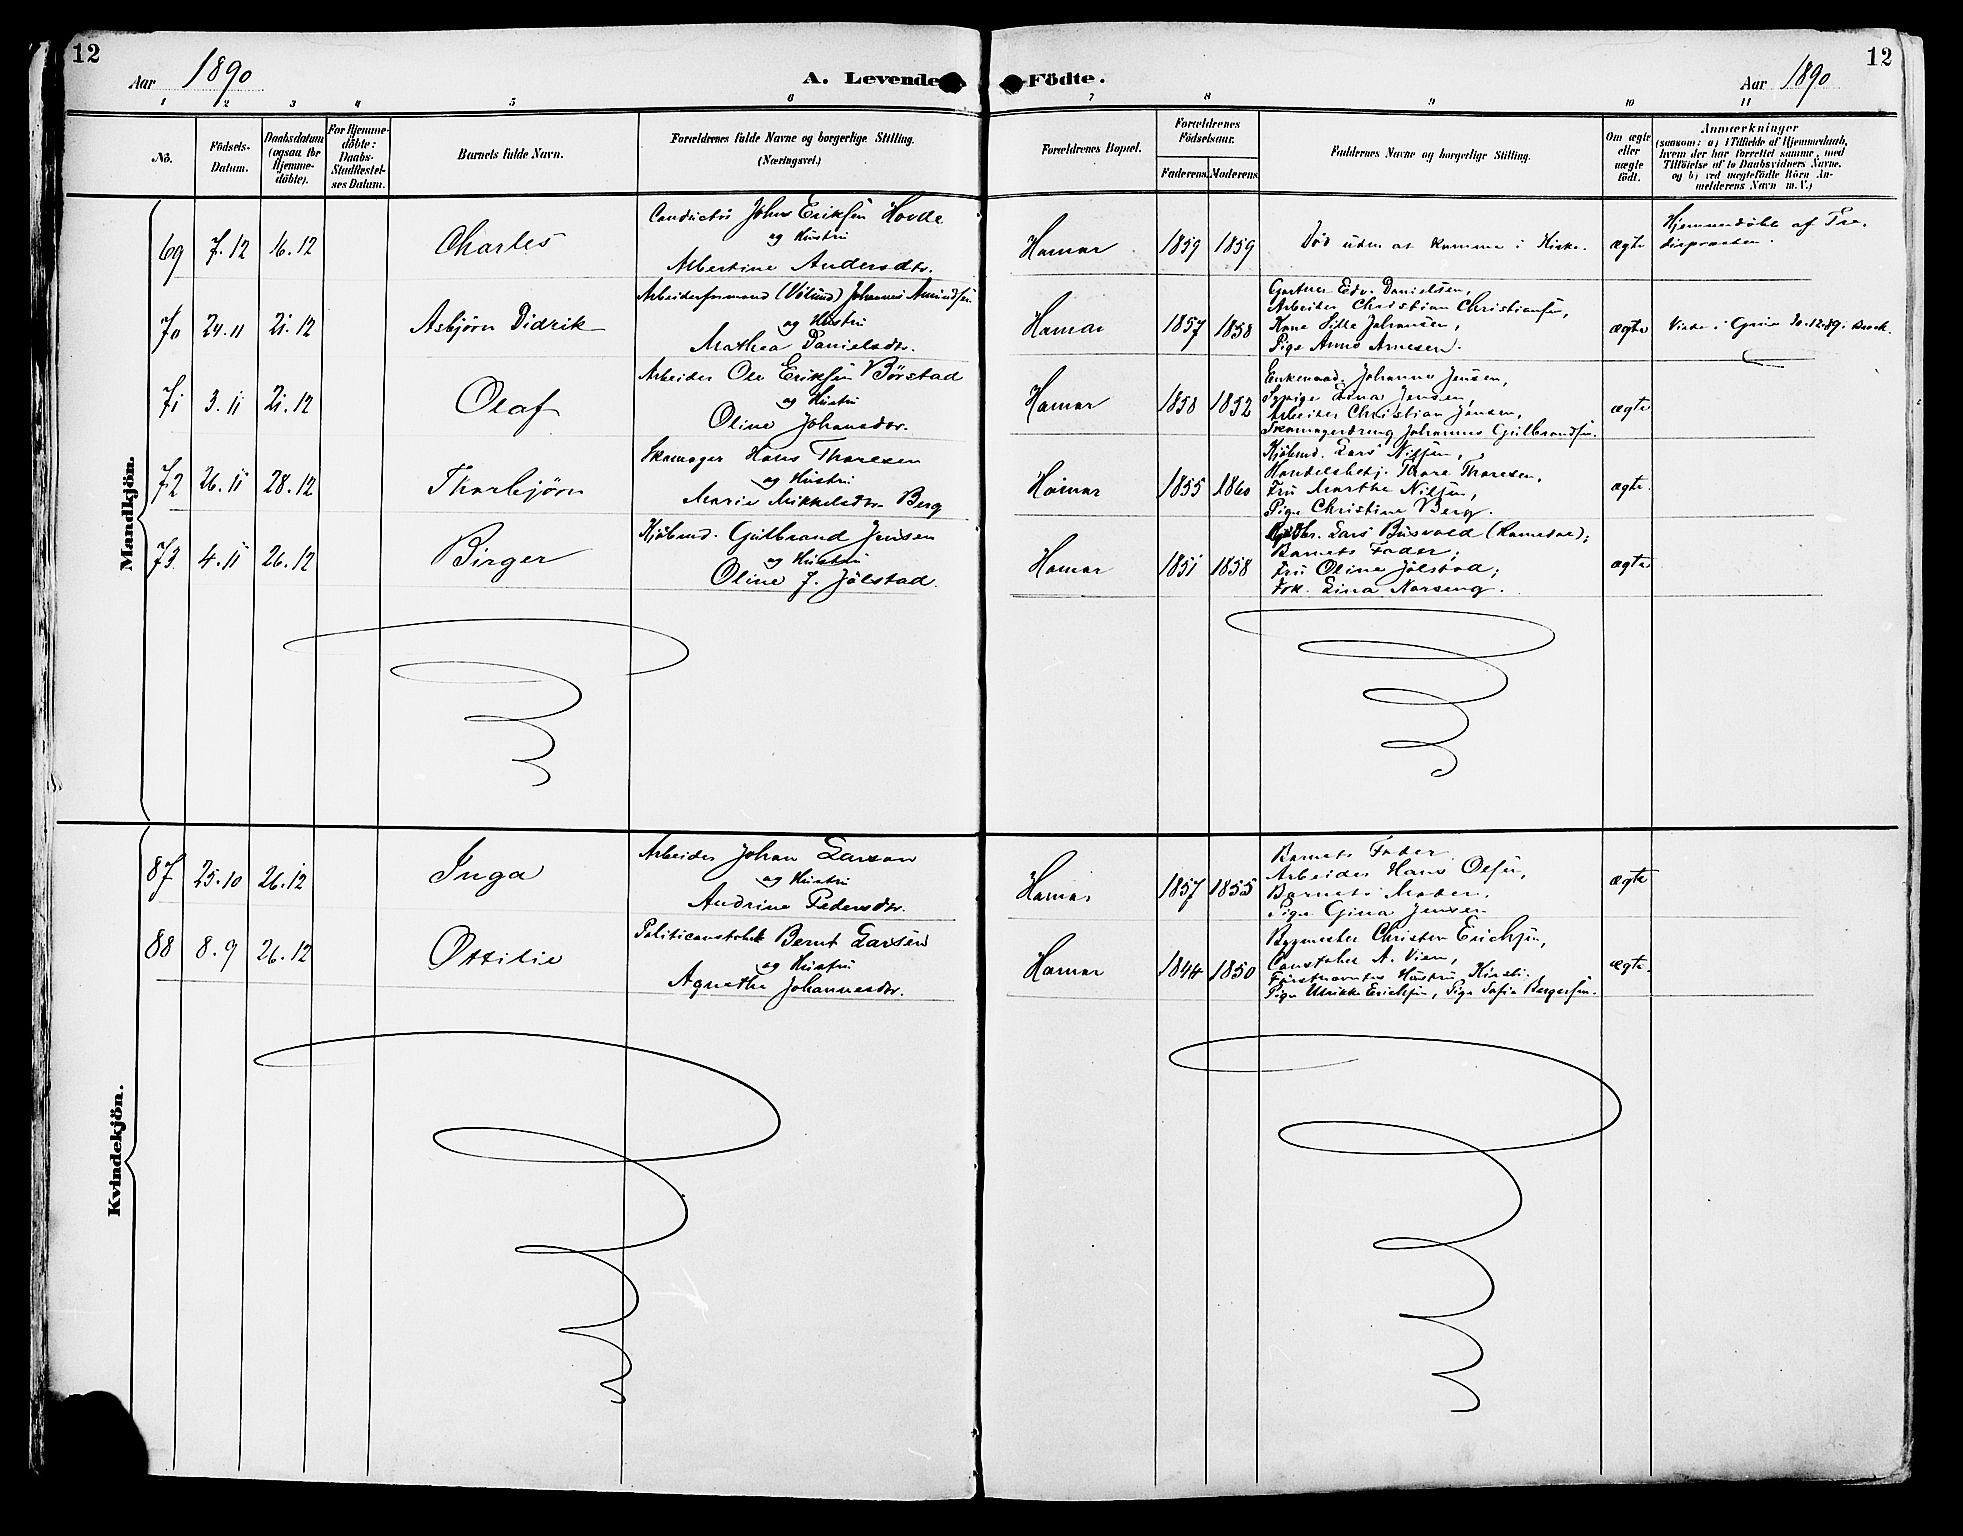 12
Aar 1890
A. Levende
1 2 3 4 5 6
Nô.
Födsels-
Datum.
Daabsdatum
(ogsaa for
Hjemme-
döbte).
For Hjemme-
döbte:
Daabs-
Stadfæstel-
ses Datum.
Barnets fulde Navn.
Forældrenes fulde Navne og borgerlige Stilling.
(Næringsvei.)
Mandkjön.
69 7.12 16.12 Charles
Conductör Johns Eriksen Hovde
og Hustru
Albertine Andersdtr.
70 24.11 21.12 Asbjørn Didrik
Arbeiderformand (Vølund) Johannes Amundsen
og Hustru
Mathea Danielsdtr.
71 3.11 21.12 Olaf
Arbeider Ole Eriksen Børstad
og Hustru
Oline Johansdtr.
72 26.11 28.12 Thorbjørn
Skomager Hans Thoresen
og Hustru
Marie Mikkelsdtr. Berg
73 4.11 26.12 Birger
Kjøbmd. Gulbrand Jensen
og Hustru
Oline J. Jølstad.
Kvindekjön.
87 25.10 26.12 Inga
Arbeider Johan Larsen
og Hustru
Andrine Pedersdtr.
88 8.9 26.12 Ottilie
Politiconstabel Bernt Larsen
og Hustru
Agnethe Johannesdtr.
12
Födte.
Aar 1890
7 8 9 10 11
Forældrenes Bopæl.
Forældrenes
Födselsaar.
Faderens. Moderens.
Faddernes Navne og borgerlige Stilling.
Om ægte
eller
uægte
födt.
Anmærkninger
(saasom: a) i Tilfælde af Hjemmedaab,
hvem der har forrettet samme, med
Tilföielse af to Daabsvidners Navne.
og b) ved uægtefödte Börn An-
melderens Navn m. V.)
Hamar 1859 1859 Död uden at komme i Kirke. ægte
Hjemmedöbt af
Hamar 1857 1858
Gartner Edv. Danielsen,
Arbeider Christian Christiansen,
Kone Johansen,
Pige Anne Arnesen.
ægte
Hamar 1858 1852
Enkemand Johannes Jensen,
Sypige Lina Jensen,
Arbeider Christian Jensen,
Skomagerdreng Johannes Gulbrandsen.
ægte
Hamar 1855 1860
Kjøbmd. Lars Nilsen,
Handelsbetj. Thore Thoresen,
Fru Marthe Nilsen,
Pige Christine Berg.
ægte.
Hamar 1851 1858
Lars Busvold (Romedal);
Barnets Fader;
Fru Oline Jølstad;
Frk. Lina Narseng.
ægte
Hamar 1857 1855
Barnets Fader.
Arbeider Hans Olsen,
Barnets Moder,
Pige Gina Jensen
ægte
Hamar 1844 1850
Bygmester Christen Erichsen,
Constabel A. Vien,
Førstnævntes Hustru Kirsti.
Pige Ulrikke Erichsen, Pige Sofie Bergersen.
ægte.